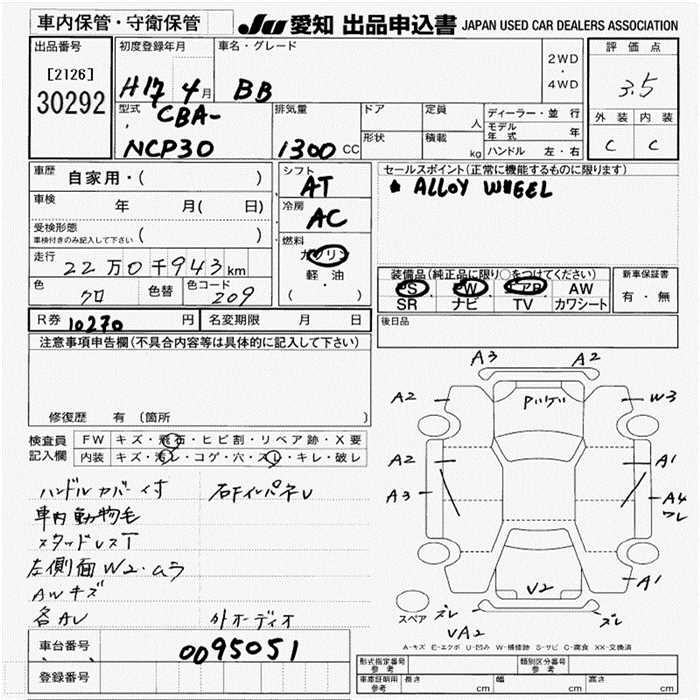 車内保管・守衛保管
JU 愛知 出品申込書 JAPAN USED CAR DEALERS ASSOCIATION
出品番号
[2126]
30292
初度登録年月
H17 4月
車名・グレード
BB
2WD
・
4WD
評価点
3.5
外装 内装
C C
型式
CBA-
NCP30
排気量
1300 CC
ドア
形状
定員
人
積載
kg
ディーラー・並行
モデル年式 年
ハンドル 左・右
車歴 自家用・( )
車検 年 月( 日)
受検形態
車検付きのみ記入して下さい ( )
走行
22万0千943km
色
クロ
色替
色コード
209
シフト
AT
冷房
AC
燃料
ガソリン
軽・油
( ・ )
セールスポイント(正常に機能するものに限ります)
ALLOY WHEEL
装備品(純正品に限り○をつけてください)
PS PW エアB AW
SR ナビ TV カワシート
新車保証書
有・無
R券 10270 円
名変期限 月 日
後日品
注意事項申告欄(不具合内容等は具体的に記入して下さい)
修復歴 有(箇所 )
検査員記入欄
FW キズ・飛石・ヒビ割・リペア跡・X要
内装 キズ・汚レ・コゲ・穴・スレ・キレ・破レ
ハンドルカバー付
右下インパネU
車内動物毛
スタッドレスT
左側面W2・ムラ
AWキズ
各AU
外オーディオ
A3 A2
A2 W3
A2 A1
A3 A4
ワレ
A1
V2
ズレ ズレ
VA2
スペア
A-キズ E-エクボ U-凹み W-補修跡 S-サビ C-腐食 XX-交換済
車台番号 0095051
登録番号
形式指定番号
参考
類別区分番号
参考
車庫証明用
参考
長さ cm
幅 cm
高さ cm